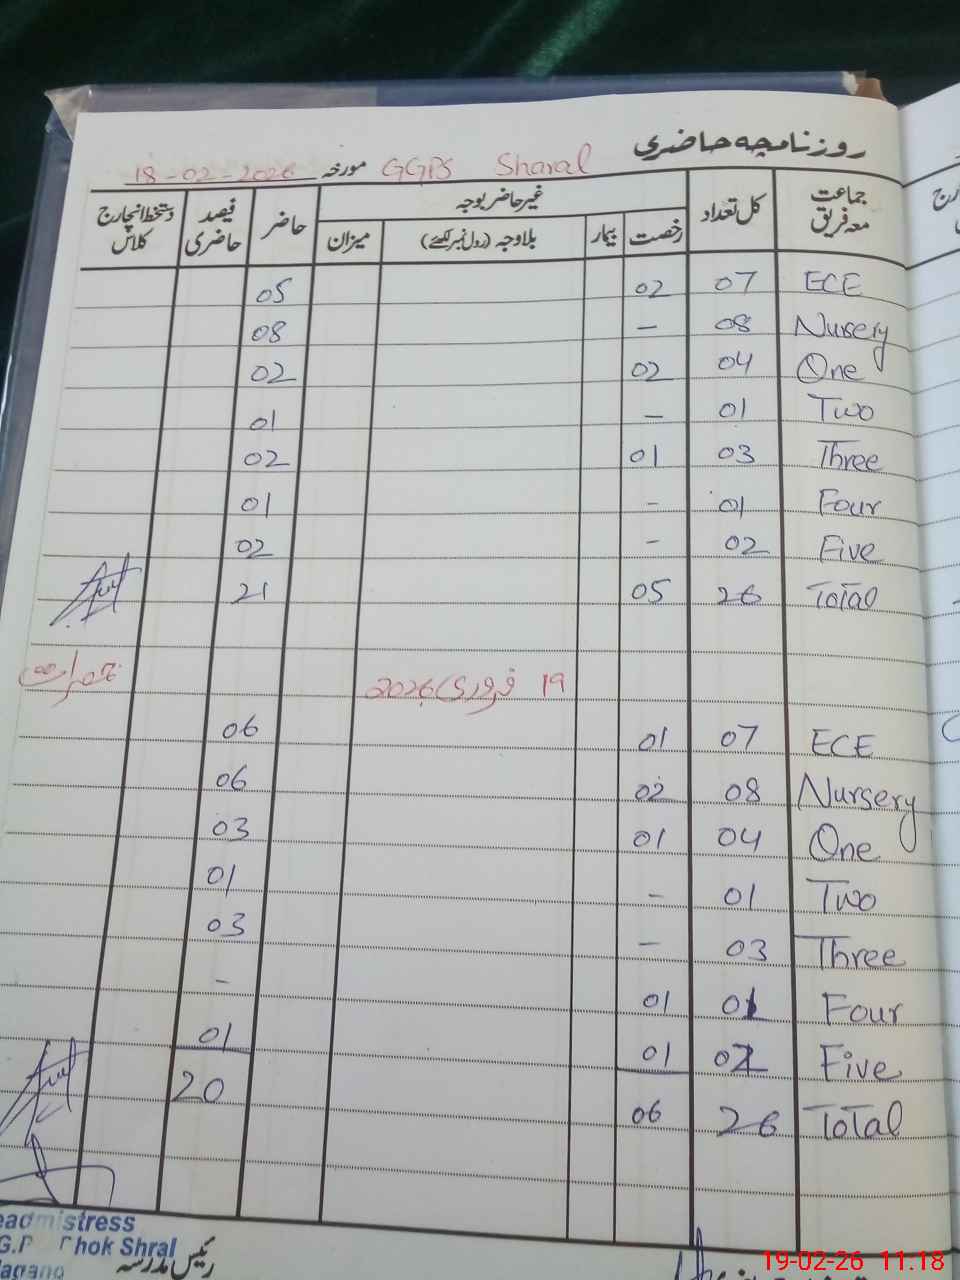 روزنامچہ حاضری
GGPS Sharal مورخہ 18-02-2026
جماعت معہ فریق کل تعداد غیر حاضر بوجہ حاضر فیصد حاضری دستخط انچارج کلاس
رخصت بیمار بلاوجہ (رول نمبر لکھئے) میزان
ECE 07 02 05
Nursery 08 – 08
One 04 02 02
Two 01 – 01
Three 03 01 02
Four 01 - 01
Five 02 - 02
Total 26 05 21
19 فروری 2026 جمعرات
ECE 07 01 06
Nursery 08 02 06
One 04 01 03
Two 01 - 01
Three 03 - 03
Four 01 01 -
Five 02 01 01
Total 26 06 20
eadmistress
G.P hok Shral
agano
رئیس مدرسہ
19-02-26 11.18